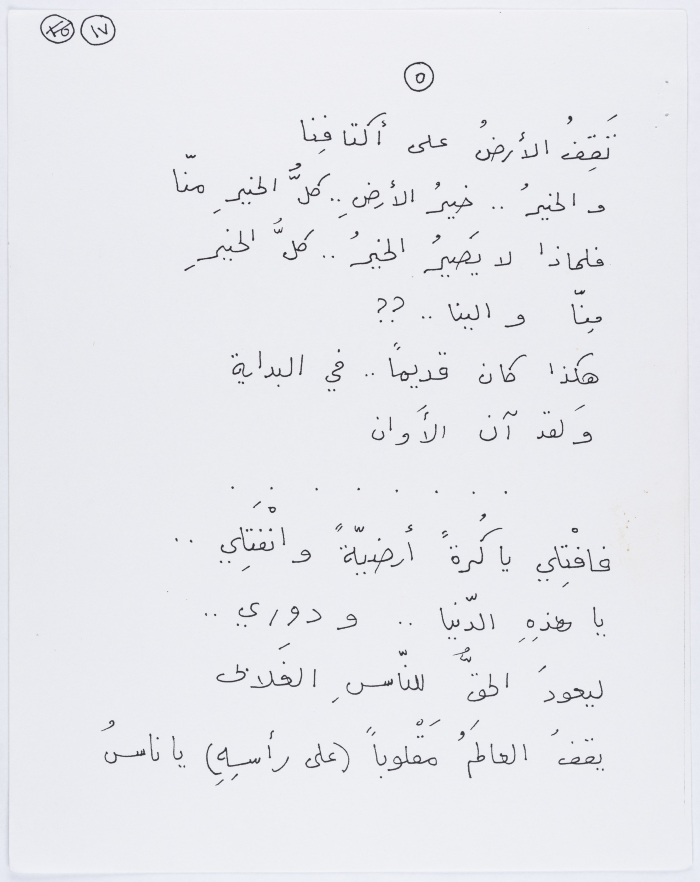 ١٧
٥
تَقِفُ الأرضُ على أكتافِنا
و الخيرُ .. خيرُ الأرضِ .. كلُّ الخيرِ منّا
فلماذا لا يَصيرُ الخيرُ .. كلُّ الخيرِ
مِنّا و إلينا .. ??
هكذا كان قديماً .. في البداية
وَلقد آن الأَوان
. . . . . . . .
فافْتِلي يا كُرةً أرضيّةً وانْفَتِلي ..
يا هذِهِ الدّنيا .. و دوري ..
ليعودَ الحقُّ للنّاسِ الغَلابى
يقفُ العالمُ مَقْلوباً (على رأسِهِ) يا ناسُ